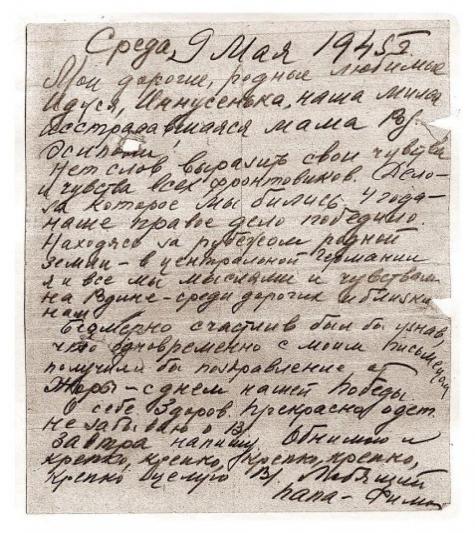 Среда, 9 Мая 1945 г.
Мои дорогие, родные любимые
Идуся, Иннусенька, наша милая
исстрадавшаяся мама
Нет слов выразить свои чувства
и чувства всех фронтовиков. Дело-
за которое мы бились 4 года-
наше правое дело победило.
Находясь за рубежом родной
земли - в центральной Германии
я и все мы мыслями и чувствами
на Родине - среди дорогих и близких
нам
Безмерно счастлив был бы узнав,
что одновременно с моим письмецом
получили бы поздравление от
Жоры - с днем нашей Победы.
О себе. Здоров. Прекрасно одет.
Не забываю о В.
Завтра напишу. Обнимаю и
крепко, крепко, крепко, крепко,
крепко целую В. Любящий
папа - Фима